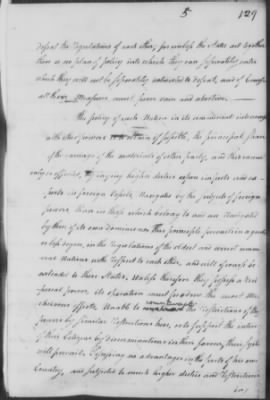 5 129
defeat the regulations of each other, for unless the States act together
there is no plan of policy into which they can separately enter
which they will not be separately interested to defeat, and of Course
all their Measures must prove vain and abortive. —
The policy of each Nation in its commercial intercourse
with other powers is to obtain if possible, the principal share
of the carriage of the materials of either party, and this can
only be effected, By laying higher duties upon imports and ex-
ports in foreign Vessels, Navigated by the subjects of foreign
powers than in those which belong to and are Navigated
by those of its own dominions this principle prevails in a greater
or less degree, in the regulations of the oldest and most comm-
ercial Nations with respect to each other, and will of course be
extended to these States, Unless therefore they possess a reci-
procal power, its operation must produce the most Mis-
chievous effects. Unable to counteract the restrictions of those
powers by similar restrictions here, or to support the interest
of their Citizens by discriminations in their favor, their system
will prevail. Possessing no advantages in the ports of his own
Country, and subjected to much higher duties and restrictions
in